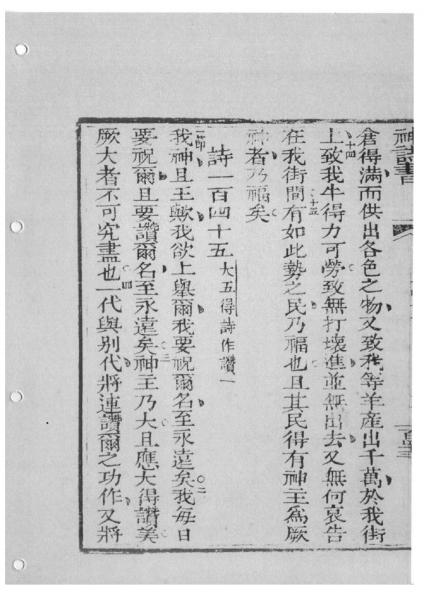 神詩書
倉得滿而供出各色之物又致我等羊產出千萬於我街
上十四致我牛得力可勞致無打壞進並無出去又無何哀告
在我街間十五有如此勢之民乃福也且其民得有神主為厥
神者乃福矣
詩一百四十五 大五得詩作讚一
一節我神且王歟我欲上舉爾我要祝爾名至永遠矣○二我每日
要祝爾且要讚爾名至永遠矣○三神主乃大且應大得讚美
厥大者不可究盡也○四一代與別代將連讚爾之功作又將